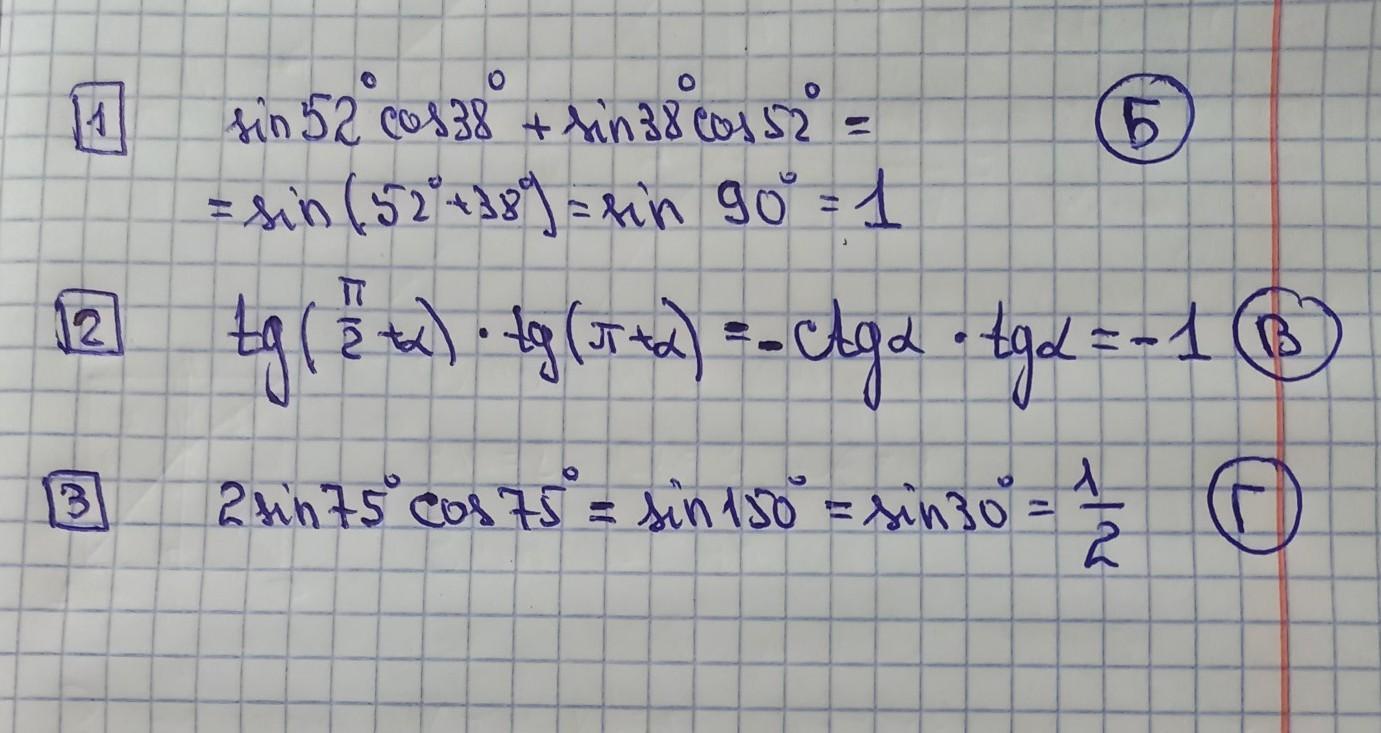 1 sin52° cos38° + sin38° cos52° = Б
= sin(52°+38°) = sin 90° = 1
2 tg(π/2+α) · tg(π+α) = - ctgα · tgα = -1 В
3 2sin75° cos75° = sin150° = sin30° = 1/2 Г